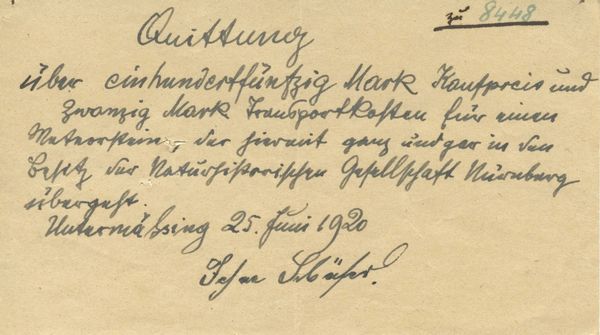 zu 8448
Quittung
über einhundertfünfzig Mark Kaufpreis und
zwanzig Mark Transportkosten für einen
Meteorstein, der hiermit ganz und gar in den
Besitz der Naturhistorischen Gesellschaft Nürnberg
übergeht.
Untermässing 25. Juni 1920